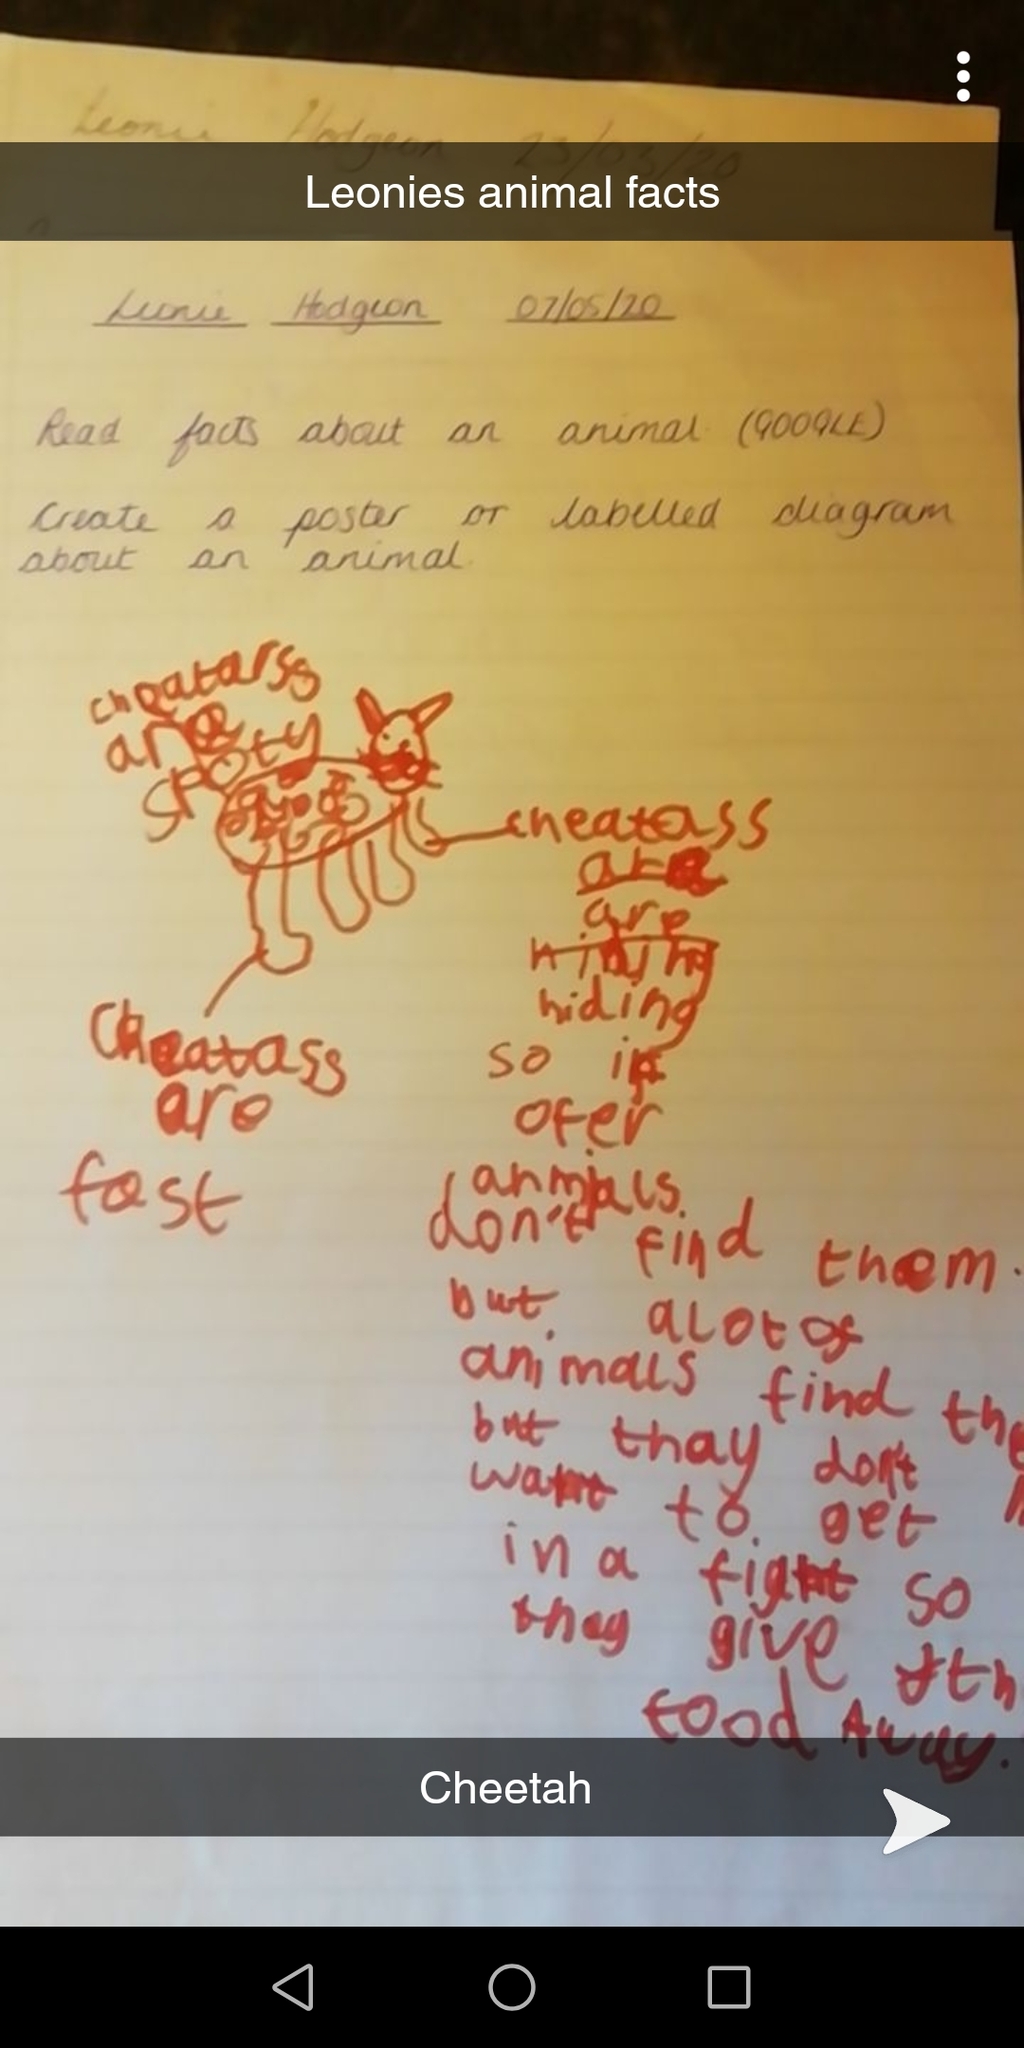 Leonie Hodgeon 23/03/20
Leonies animal facts
Leonie Hodgeon 07/05/20
Read facts about an animal (GOOGLE)
Create a poster or labelled diagram
about an animal.
cheatarss
are
spoty
cheatass
are
are
hiding
so if
ofer
anmials
don't find them.
but alot of
animals find the
but thay don't
want to get
in a fight so
thay give
food Away.
Cheatass
are
fast
Cheetah